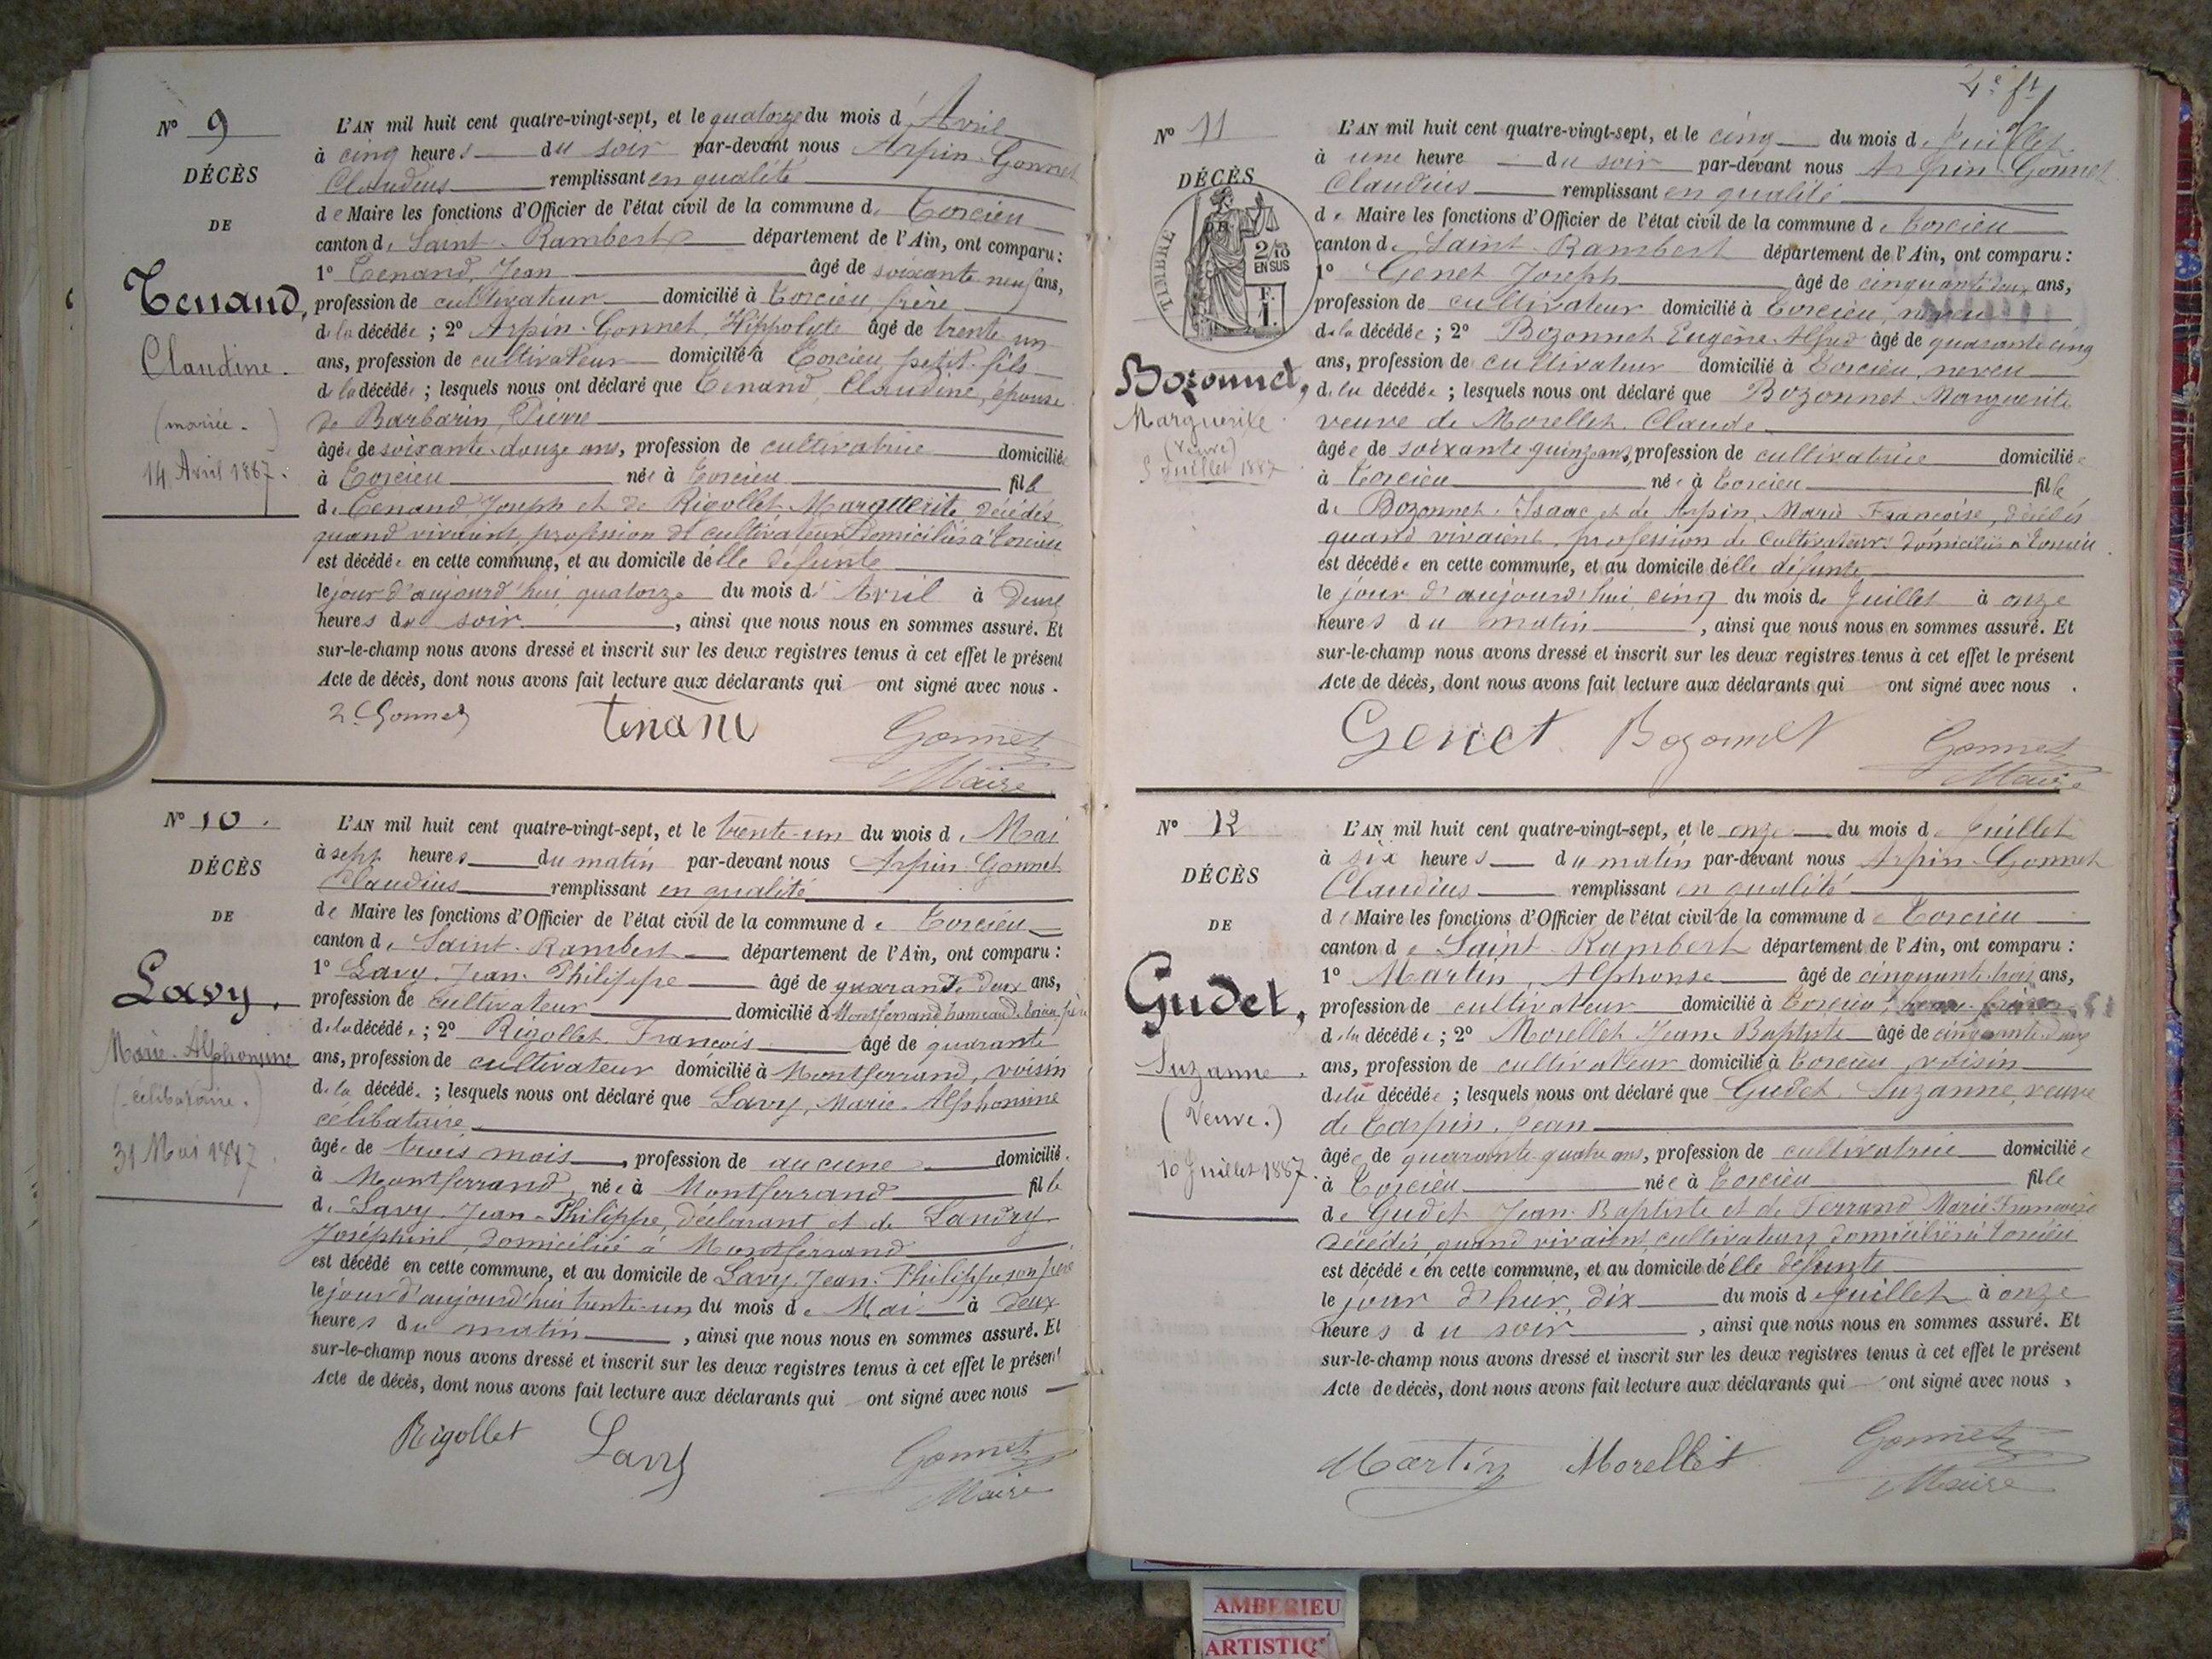 N° 9
DÉCÈS
DE
Tenand,
Claudine.
(mariée.)
14 Avril 1887.
L'AN mil huit cent quatre-vingt-sept, et le quatorze du mois d'Avril
à cinq heures du soir par-devant nous Arpin-Gonnet
Claudius remplissant en qualité
de Maire les fonctions d'Officier de l'état civil de la commune de Torcieu
canton de Saint-Rambert département de l'Ain, ont comparu :
1° Tenand, Jean âgé de soixante neuf ans,
profession de cultivateur domicilié à Torcieu, frère
de la décédée ; 2° Arpin-Gonnet, Hippolyte âgé de trente un
ans, profession de cultivateur domicilié à Torcieu petit-fils
de la décédée ; lesquels nous ont déclaré que Tenand, Claudine, épouse
de Barbarin, Pierre
âgée de soixante-douze ans, profession de cultivatrice domiciliée
à Torcieu née à Torcieu fille
de Tenand Joseph et de Rigollet Marguerite décédés
quand vivaient, profession de cultivateurs Domiciliés à Torcieu
est décédée en cette commune, et au domicile d'elle défunte
le jour d'aujourd'hui quatorze du mois d'Avril à Deux
heures du soir, ainsi que nous nous en sommes assuré. Et
sur-le-champ nous avons dressé et inscrit sur les deux registres tenus à cet effet le présent
Acte de décès, dont nous avons fait lecture aux déclarants qui ont signé avec nous.
Gonnet Tenand Gonnet
Maire
N° 10.
DÉCÈS
DE
Lavy.
Marie-Alphonsine
(célibataire.)
31 Mai 1887.
L'AN mil huit cent quatre-vingt-sept, et le trente-un du mois de Mai
à sept heures du matin par-devant nous Arpin-Gonnet
Claudius remplissant en qualité
de Maire les fonctions d'Officier de l'état civil de la commune de Torcieu
canton de Saint-Rambert département de l'Ain, ont comparu :
1° Lavy, Jean-Philippe âgé de quarante deux ans,
profession de cultivateur domicilié à Montferrand hameau de Torcieu, père
de la décédée ; 2° Rigollet François âgé de quarante
ans, profession de cultivateur domicilié à Montferrand, voisin
de la décédée ; lesquels nous ont déclaré que Lavy, Marie-Alphonsine
célibataire
âgée de trois mois, profession de aucune domiciliée
à Montferrand, née à Montferrand fille
de Lavy Jean-Philippe, déclarant et de Landry
Joséphine, domiciliée à Montferrand
est décédé en cette commune, et au domicile de Lavy Jean-Philippe son père
le jour d'aujourd'hui trente-un du mois de Mai à deux
heures du matin, ainsi que nous nous en sommes assuré. Et
sur-le-champ nous avons dressé et inscrit sur les deux registres tenus à cet effet le présent
Acte de décès, dont nous avons fait lecture aux déclarants qui ont signé avec nous
Rigollet Lavy Gonnet
Maire
N° 11
DÉCÈS
TIMBRE
2/10
EN SUS
F.
1.
Bozonnet,
Marguerite
(Veuve)
5 Juillet 1887
L'AN mil huit cent quatre-vingt-sept, et le cinq du mois de Juillet
à une heure du soir par-devant nous Arpin-Gonnet
Claudius remplissant en qualité
de Maire les fonctions d'Officier de l'état civil de la commune de Torcieu
canton de Saint-Rambert département de l'Ain, ont comparu :
1° Genet Joseph âgé de cinquante deux ans,
profession de cultivateur domicilié à Torcieu, neveu
de la décédée ; 2° Bozonnet Eugène Alfred âgé de quarante cinq
ans, profession de cultivateur domicilié à Torcieu, neveu
de la décédée ; lesquels nous ont déclaré que Bozonnet Marguerite
veuve de Morellet Claude
âgée de soixante quinze ans, profession de cultivatrice domiciliée
à Torcieu née à Torcieu fille
de Bozonnet Isaac et de Arpin, Marie Françoise, décédés
quand vivaient, profession de Cultivateurs domiciliés à Torcieu
est décédée en cette commune, et au domicile d'elle défunte
le jour d'aujourd'hui cinq du mois de Juillet à onze
heures du matin, ainsi que nous nous en sommes assuré. Et
sur-le-champ nous avons dressé et inscrit sur les deux registres tenus à cet effet le présent
Acte de décès, dont nous avons fait lecture aux déclarants qui ont signé avec nous.
Genet Bozonnet Gonnet
Maire
N° 12
DÉCÈS
DE
Gudet,
Suzanne.
(Veuve.)
10 Juillet 1887.
L'AN mil huit cent quatre-vingt-sept, et le onze du mois de Juillet
à six heures du matin par-devant nous Arpin-Gonnet
Claudius remplissant en qualité
de Maire les fonctions d'Officier de l'état civil de la commune de Torcieu
canton de Saint-Rambert département de l'Ain, ont comparu :
1° Martin, Alphonse âgé de cinquante trois ans,
profession de cultivateur domicilié à Torcieu,
de la décédée ; 2° Morellet Jean Baptiste âgé de cinquante deux
ans, profession de cultivateur domicilié à Torcieu voisin
de la décédée ; lesquels nous ont déclaré que Gudet Suzanne, veuve
de Carpin Jean
âgée de quarante-quatre ans, profession de cultivatrice domiciliée
à Torcieu née à Torcieu fille
de Gudet Jean-Baptiste et de Ferrand Marie Françoise
décédés, quand vivaient, cultivateurs domiciliés à Torcieu
est décédée en cette commune, et au domicile d'elle défunte
le jour d'hier, dix du mois de Juillet à onze
heures du soir, ainsi que nous nous en sommes assuré. Et
sur-le-champ nous avons dressé et inscrit sur les deux registres tenus à cet effet le présent
Acte de décès, dont nous avons fait lecture aux déclarants qui ont signé avec nous,
Martin Morellet Gonnet
Maire
AMBERIEU
ARTISTIQ